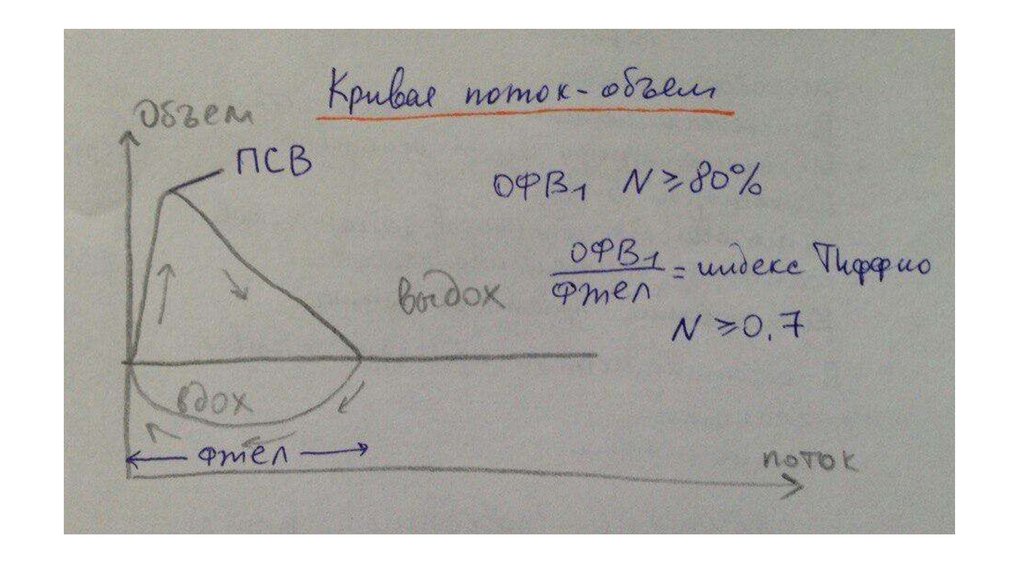 Кривая поток-объем
Объем
ПСВ
ОФВ1 N ≥ 80%
ОФВ1
ФЖЕЛ
= индекс Тиффно
N ≥ 0,7
выдох
вдох
ФЖЕЛ
поток